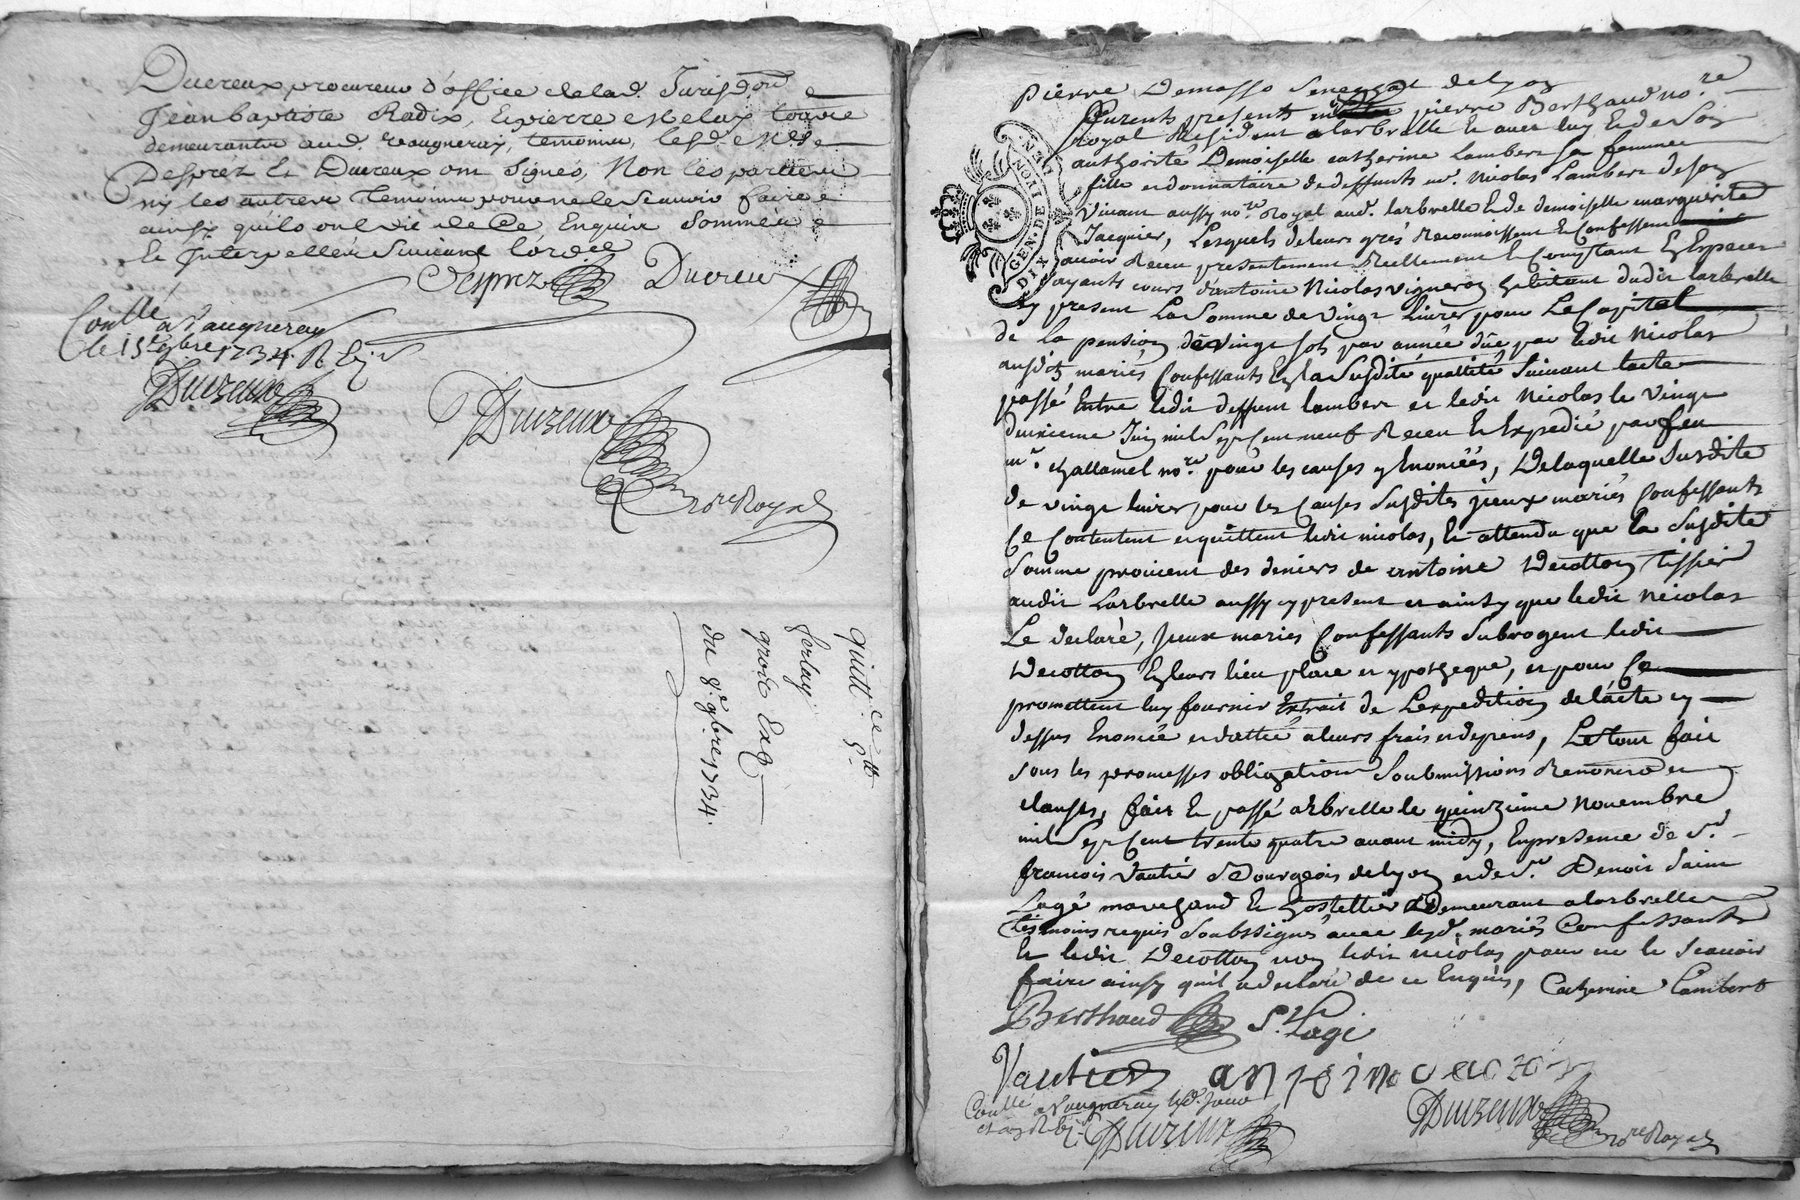 Ducreux procureur d'office de lad. Jurisdon
Jean baptiste Radix, Et pierre
demeurants aud. vaugneray, temoins, lesd. Srs
Desprez Et Ducreux ont signés, Non les parties
ny les autres Temoins pour ne le Scavoir faire
ainsy quils ont dit de Ce Enquis Sommés
Et Interpellés Suivant lordce
Desprez Ducreux
Conllé
a Vaugneray
le 15e 9bre 1734. R
Duvzeux
Duvzeux
nore Royal
quittce 5tt
ferlay.
grosse Ext
du 8e 9bre 1734.
GEN. DE LYON
DIX DEN
pierre Demasso Senechal de lyon
furent presents me pierre Berthaud nore
Royal Resident a larbrelle Et avec luy Et de Son
authorité Demoiselle catherine Lambert Sa femme
fille et donnataire de deffunts me. Nicolas Lambert de Son
Vivant aussy nore Royal aud. larbrelle Et de demoiselle marguerite
Jacquier, Lesquels de leurs grés Reconnoissent Et Confessent
avoir Receu presentement Reellement Et Comptant En Especes
ayants cours d'antoine Nicolas vigneron habitant dudit larbrelle
cy present La Somme de vingt Livres pour Le Capital
de La pension de vingt sols par année düe par ledit Nicolas
ausdits mariés Confessants En la Susdite qualitté Suivant lacte
passé Entre ledit deffunt lambert et ledit Nicolas le vingt
deuxieme Juin mil Sept Cent neuf Receu Et Expedié par feu
me. challamel nore. pour les causes y Enoncéés, De laquelle Susdite
de vingt livres pour les Causes Susdites jceux mariés Confessants
Ce Contentent et quittent ledit nicolas, Et attendu que la Susdite
Somme provient des deniers de antoine Decotton tissier
audit Larbrelle aussy cy present et ainsy que ledit Nicolas
Le declaré, jceux mariés Confessants Subrogent ledit
Decotton En leurs lieu place et ypotheque, et pour Ce
promettent luy fournir Extrait de Lexpedition de lacte cy
dessus Enoncée et dattée a leurs frais et depens, Le tout fait
sous les promesses obligations Soubmissions Renonciaon et
clauses, fait Et passé a larbrelle le quinzieme Novembre
mil Sept Cent trente quatre avant midy, En presence de Sr.
francois Vautier Bourgeois de lyon et de Sr. Benoit Saint
Lagé marchand Et hostellier Demeurant a larbrelle
tesmoins requis Soubssignés avec lesd. mariés Confessants
Et ledit Decotton non ledit nicolas pour ne le Scavoir
faire ainsy quil a declaré de ce Enquis, Catherine Lambert
Berthaud St. Lagé
Vautier antoine
Conllé
a Vaugneray led. Jour
et an R
Duvzeux
Duvzeux
nore Royal